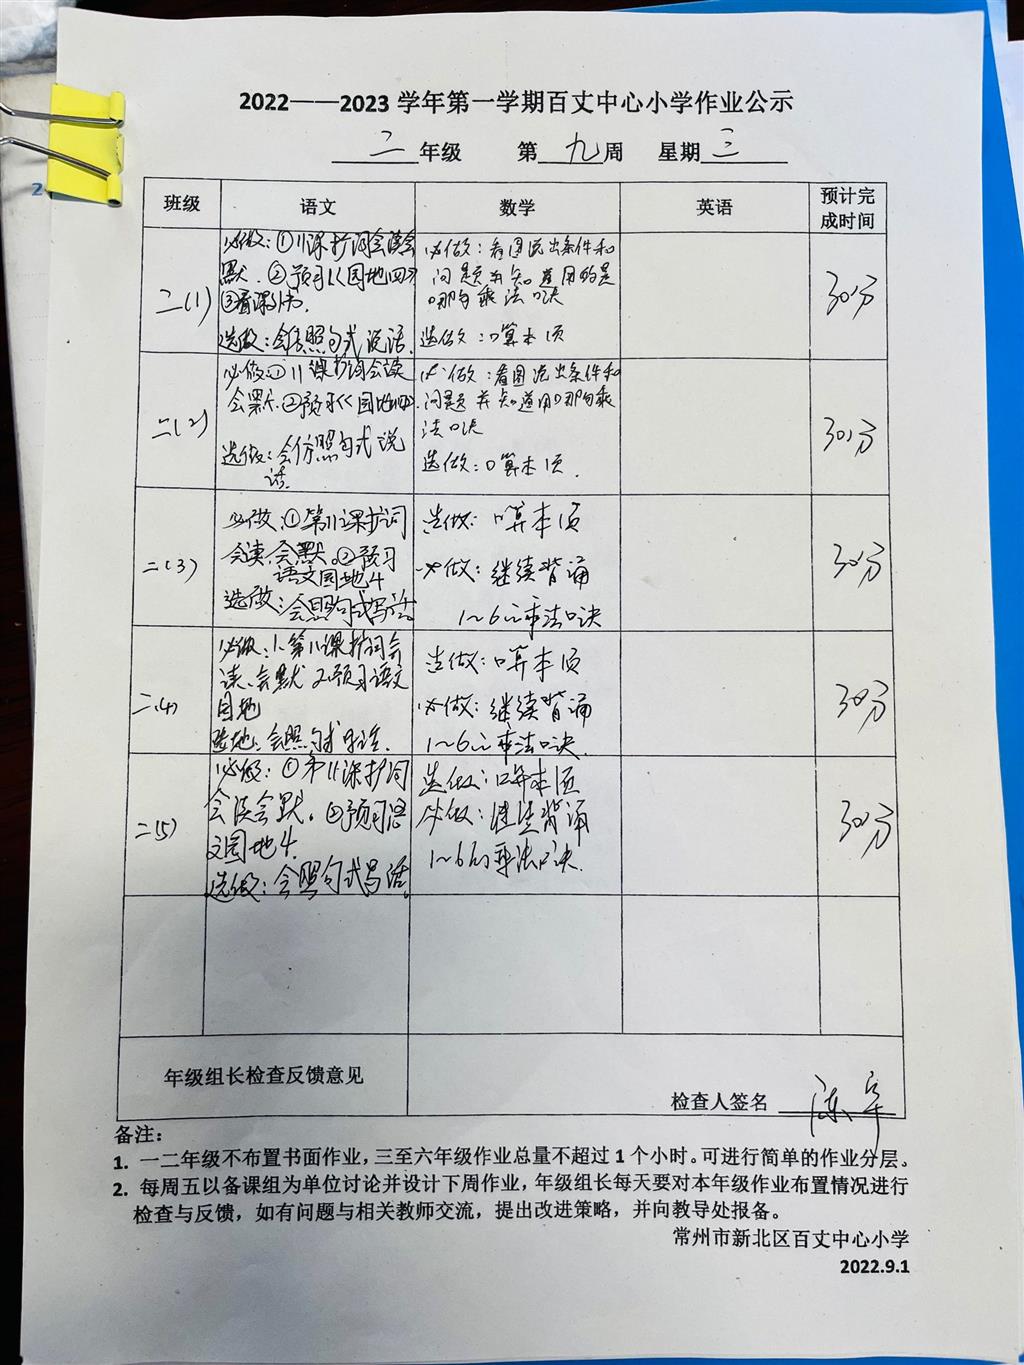 2022——2023 学年第一学期百丈中心小学作业公示
二 年级 第 九 周 星期 三
班级 语文 数学 英语 预计完成时间
二(1)
必做：①11课扩词会读会
默.②预习《园地四》
③看课外书.
选做：会仿照句式说话.
必做：看图说出条件和
问题并知道用的是
哪句乘法口诀
选做：口算本1页
30分
二(2)
必做①11课扩词会读
会默.②预习《园地四》.
选做：会仿照句式说
话.
必做：看图说出条件和
问题并知道用哪句乘
法口诀
选做：口算本1页.
30分
二(3)
必做：①第11课扩词
会读,会默。②预习
语文园地4
选做：会照句式写话
选做：口算本1页
必做：继续背诵
1~6的乘法口诀
30分
二(4)
必做：1.第11课扩词会
读、会默 2.预习语文
园地
会照句式写话.
选做：口算本1页
必做：继续背诵
1~6的乘法口诀.
30分
二(5)
必做：①第11课扩词
会读会默。②预习语
文园地4.
选做：会照句式写话.
选做：口算本1页
必做：继续背诵
1~6的乘法口诀.
30分
年级组长检查反馈意见
检查人签名 陈
备注：
1. 一二年级不布置书面作业，三至六年级作业总量不超过 1 个小时。可进行简单的作业分层。
2. 每周五以备课组为单位讨论并设计下周作业，年级组长每天要对本年级作业布置情况进行
检查与反馈，如有问题与相关教师交流，提出改进策略，并向教导处报备。
常州市新北区百丈中心小学
2022.9.1